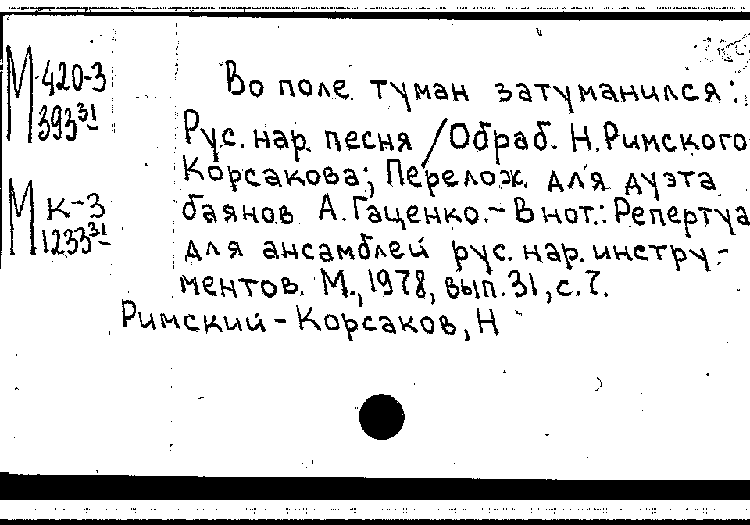 М 420-3
393 31
М К-3
1233 31
Во поле туман затуманился:
Рус. нар. песня / Обраб. Н. Римского
Корсакова; Перелож. для дуэта
баянов А. Гаценко. - В нот.: Репертуа
для ансамблей рус. нар. инстру-
ментов. М., 1978, вып. 31, с. 7.
Римский - Корсаков, Н